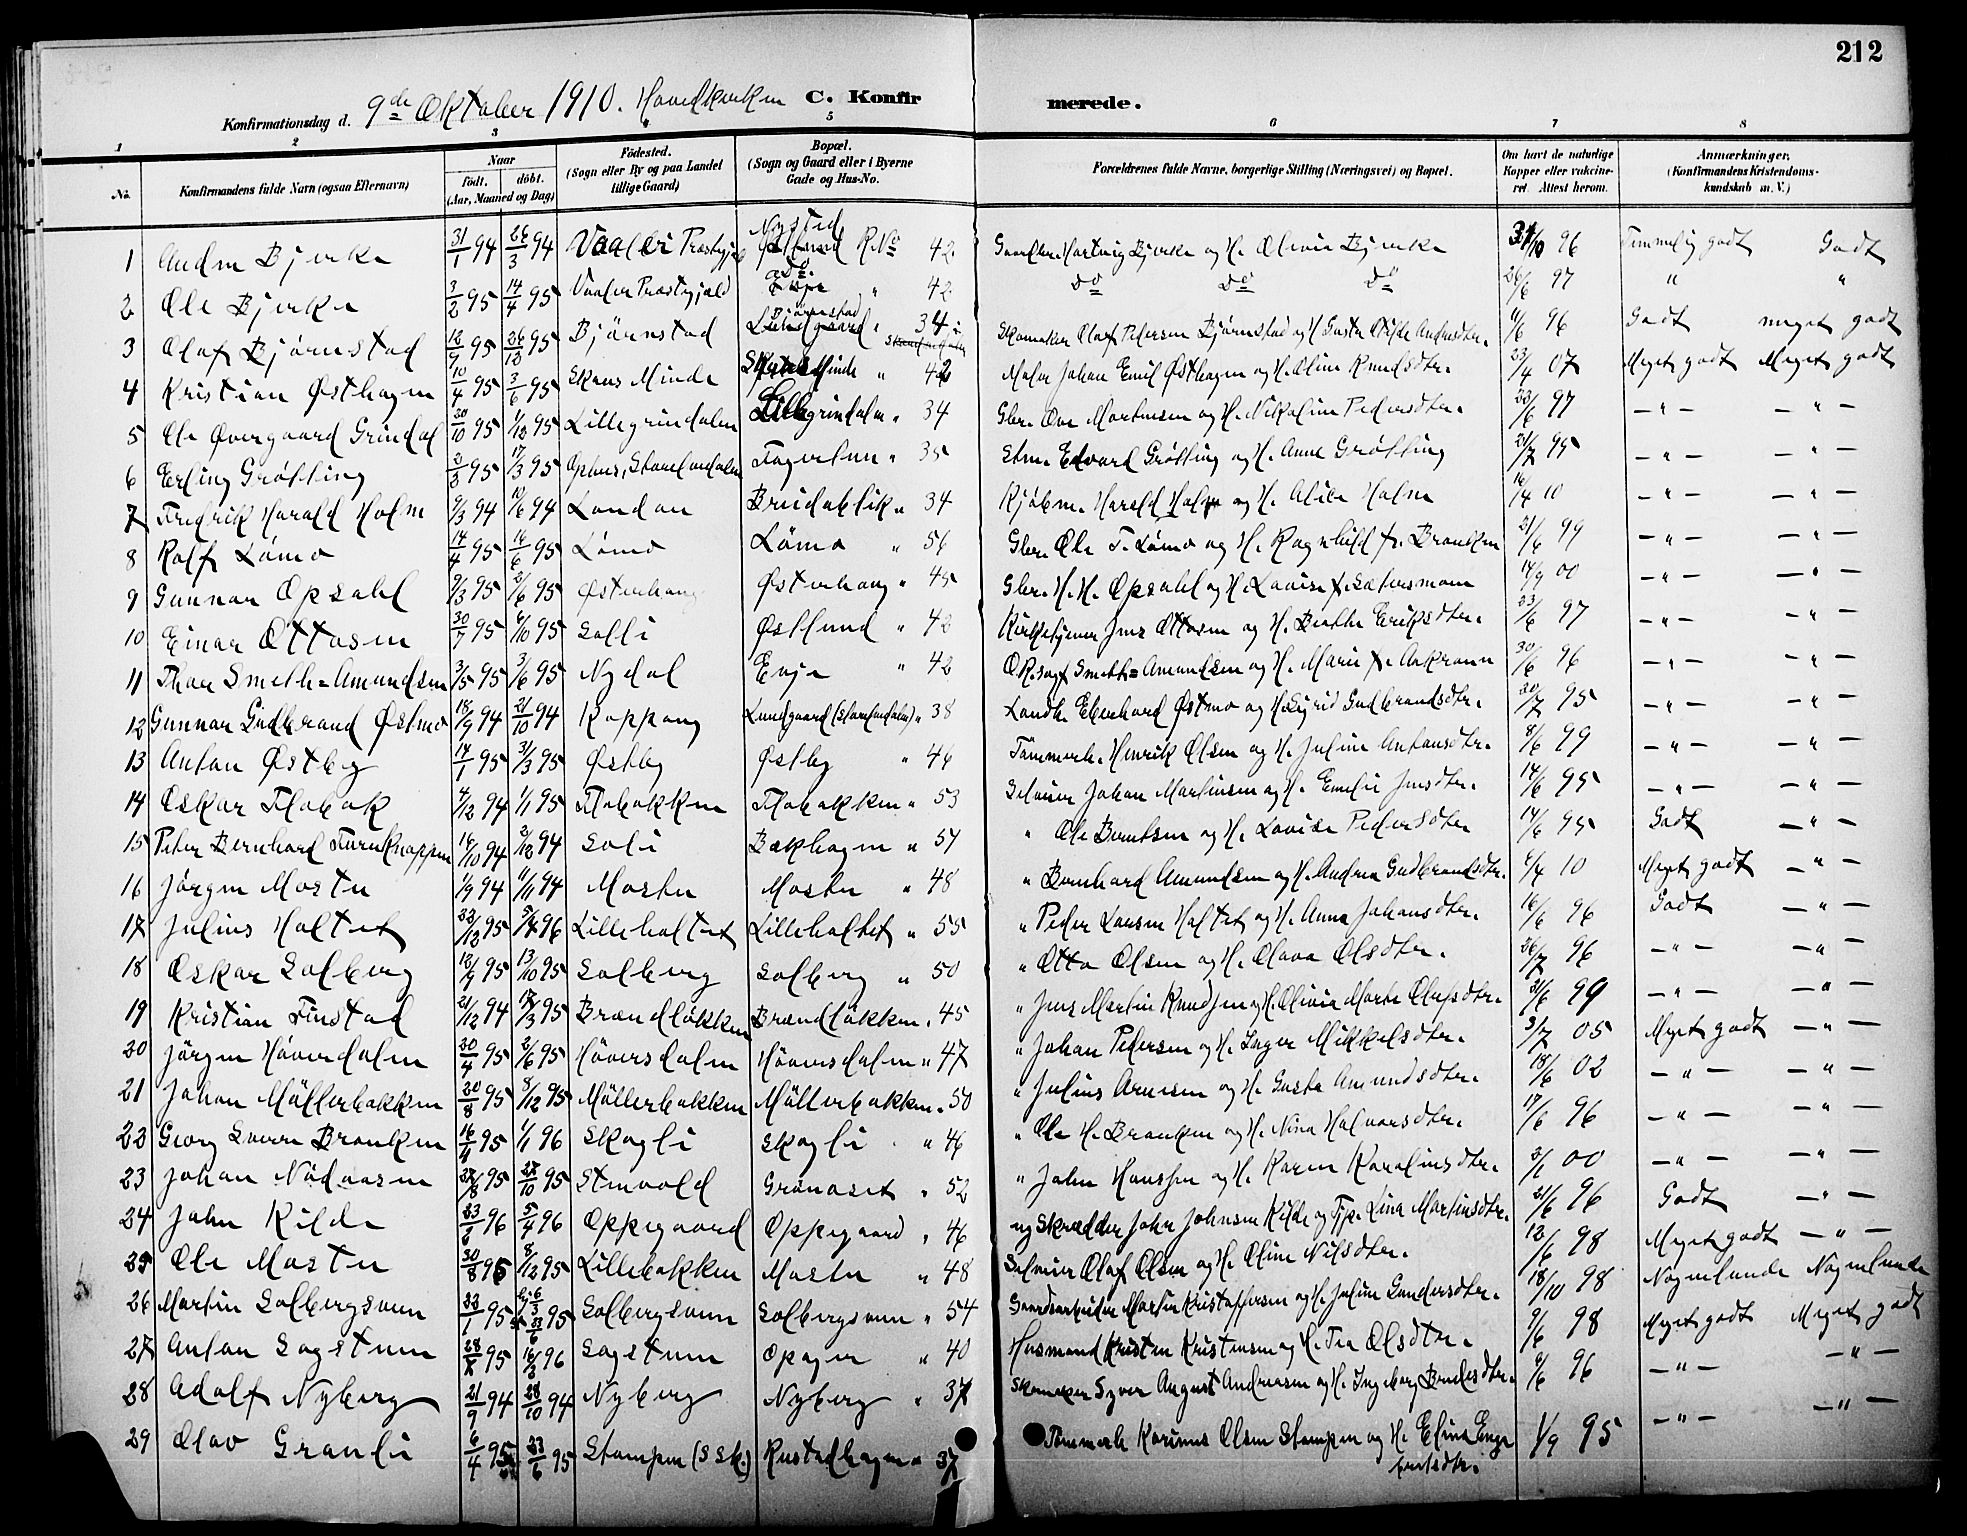 212
Konfirmationsdag d. 9de Oktober 1910. Hovedkirken C. Konfirmerede.
1 2 3 4 5 6 7 8
No. Konfirmandens fulde Navn (ogsaa Efternavn) Naar födt. döbt. (Aar, Maaned og Dag) Födested. (Sogn eller By og paa Landet tillige Gaard) Bopæl. (Sogn og Gaard eller i Byerne Gade og Hus-No. Forældrenes fulde Navne, borgerlige Stilling (Næringsvei) og Bopæl. Om havt de naturlige Kopper eller vaccineret. Attest herom. Anmærkninger, (Konfirmandens Kristendomskundskab m. V.)
1 Bjerke 31/1 94 26/3 94 Vaaler Præstegj. Nysted Østlund R No 42 Gaardbr. Hartvig Bjerke og H. Olivia Bjerke 31/10 96 Temmelig godt Godt
2 Ole Bjerke 3/2 95 14/4 95 Vaaler Præstegjæld " 42 do do do 26/6 97 " "
3 Olaf Bjørnstad 12/9 95 26/12 95 Bjørnstad Bjørnstad Lundgaard " 34 Skomaker Olaf Pedersen Bjørnstad og H. 11/6 96 Godt meget godt
4 Kristian Østhagen 10/4 95 3/6 95 Skaus Minde Minde " 42 Maler Johan Emil Østhagen og H. Oline Knudsdtr. 23/4 07 Meget godt Meget godt
5 Ole Overgaard Grindal 30/10 95 1/12 95 Lillegrindalen Lillegrindalen " 34 Gbr. Ove Mortensen og H. Nikoline Pedersdtr. 23/6 97 — " — — " —
6 Erling Grøtting 2/2 95 17/3 95 Ophus, Storelvedalen Fagertun " 35 Stm. Edvard Grøtting og H. Anne Grøtting 21/7 95 — " — — " —
7 Fredrik Harald Holm 9/3 94 10/6 94 London Breidablik " 34 Kjøbm. Harald Holm og H. Alice Holm 16/4 10 — " — — " —
8 Rolf Lømo 14/4 95 16/6 95 Lømo Lømo " 56 Gbr. Ole T. Lømo og H. Ragnhild f. Braaten 21/6 99 — " — — " —
9 Gunnar Opsahl 9/3 95 2/6 95 Østerhaug Østerhaug " 45 Gbr. H. H. Opsahl og H. Lovise f. Sætersmoen 14/9 00 — " — — " —
10 Einar Ottosen 30/7 95 6/10 95 Solli Østlund " 42 Kirketjener Jens Ottosen og H. Berthe Eriksdtr. 23/6 97 — " — — " —
11 Thor Smith-Amundsen 3/5 95 3/6 95 Nydal Enje " 42 O.R.sagf. Smith-Amundsen og H. Marie f. Askrann 30/6 96 — " — — " —
12 Gunnar Gudbrand Østmo 18/9 94 21/10 94 Koppang Lundgaard (Storelvedalen) " 38 Landh. Eberhard Østmo og H. Sigrid Gudbrandsdtr. 30/7 95 — " — — " —
13 Anton Østby 14/1 95 31/3 95 Østby Østby " 46 Tømmerh. Henrik Olsen og H. Juline Antonsdtr. 8/6 99 — " — — " —
14 Oskar Flobak 4/12 94 1/1 95 Flobakken Flobakken " 53 Selveier Johan Martinsen og H. Emelie Jensdtr. 14/6 95 — " — — " —
15 Peter Bernhard Fureknappen 14/10 94 2/12 94 Soli Bækhagen " 57 " Ole Berntsen og H. Lovise Pedersdtr 14/6 95 Godt — " —
16 Jørgen Moster 1/9 94 11/11 94 Moster Moster " 48 " Bernhard Amundsen og H. Andrea Gudbrandsdtr. 6/4 10 Meget godt — " —
17 Julius Holtet 22/12 95 96 Lilleholtet Lilleholtet " 55 " Peder Larsen Holtet og H. Anna Johansdtr. 16/6 96 Godt — " —
18 Oskar Solberg 12/9 95 13/10 95 Solberg Solberg " 50 " Otto Olsen og H. Olava Olsdtr. 26/7 96 — " — — " —
19 Kristian Finstad 21/12 94 17/3 95 Brændløkken Brændløkken " 45 " Jens Martin Knudsen og H. Olivia Marte Olufsdtr. 21/6 99 — " — — " —
20 Jørgen Høversdalen 30/4 95 2/6 95 Høversdalen Høversdalen " 47 " Johan Pedersen og H. Inger Mikkelsdtr. 3/7 05 Meget godt — " —
21 Johan Møllerbakken 20/8 95 8/12 95 Møllerbakken Møllerbakken " 50 " Julius Arnesen og H. Gusta Amundsdtr. 18/6 02 — " — — " —
22 Georg Braaten 16/4 95 1/1 96 Skogli Skogli " 46 " Ole H. Braaten og H. Nina Halvorsdtr. 17/6 96 — " — — " —
23 Johan Nødaasen 27/8 95 27/10 95 Stenvold Grønaset " 52 " John Hanssen og H. Karen Karolinsdtr. 2/1 00 — " — — " —
24 John Kilde 23/2 96 5/4 96 Oppegaard Oppegaard " 46 ug Skrædder John Johnsen Kilde og Tjp. Lina Martinsdtr. 21/6 96 Godt — " —
25 Ole Moster 30/8 95 8/12 95 Lillebakken Moster " 48 Selveier Olaf Olsen og H. Oline Nilsdtr. 12/6 98 Meget godt — " —
26 Martin Solbergsveen 22/1 95 Solbergsveen Solbergsveen " 54 Gaardsarbeider Martin Kristoffersen og H. Juline Gundersdtr. 18/10 98 Nogenlunde Nogenlunde
27 Anton Sagstuen 28/ 95 96 Sagstuen Opager " 40 Husmand Kristen Kristensen og H. Tea Olsdtr. 9/6 98 Meget godt Meget godt
28 Adolf Nyberg 21/9 94 28/10 94 Nyberg Nyberg " 37 Skomaker Syver August Andreasen og H. Ingeborg 6/6 96 — " — — " —
29 Olav Granli 6/4 95 23/6 95 Stampen (S Sk.) Rustadhagen " 37 Tømmerh. Karinus Olsen Stampen og H. Elina 1/9 95 — " — — " —